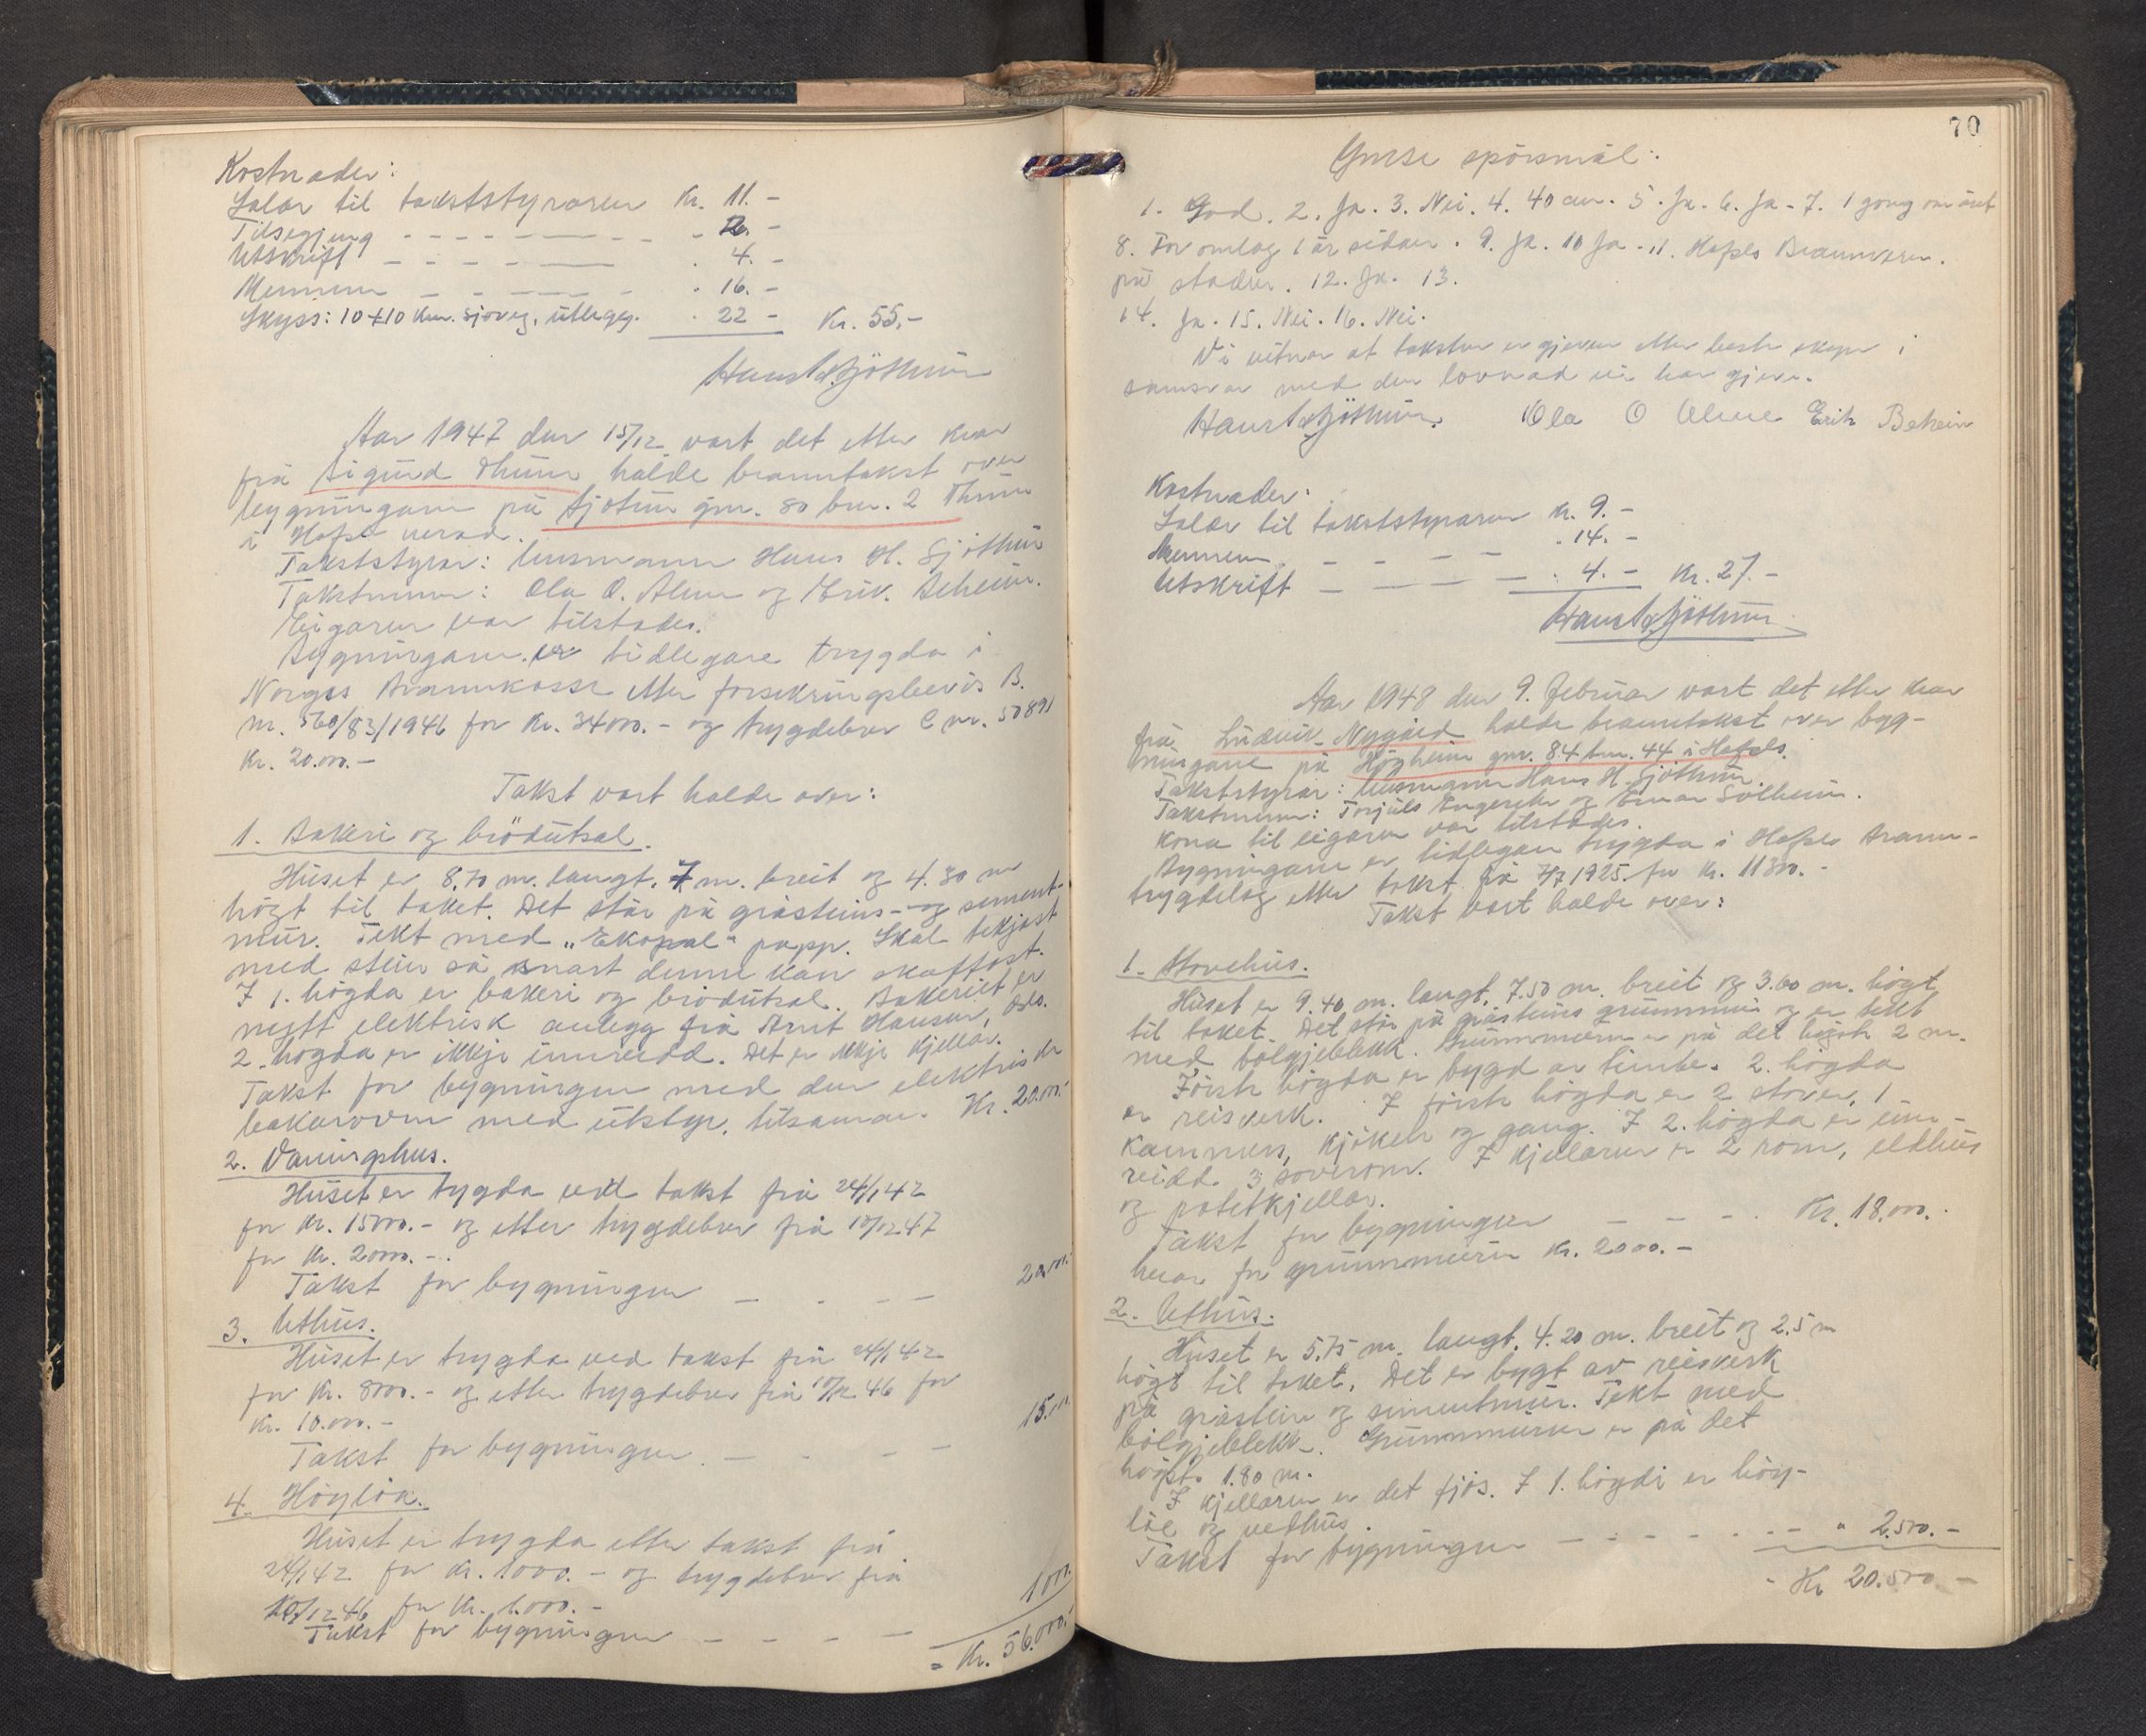 Kostnader:
Salær til takststyraren Kr. 11.-
Tilsegjing - - - - - - - - - 2. -
Utskrift - - - - - - 4. -
Mennene - - - - - - 16. -
Skyss: 10+10 km. sjøveg, utlegg. 22 - Kr. 55,-
Hans H. Sjöthun
Aar 1947 den 15/12 vart det etter krav
frå Sigurd Thune halde branntakst over
bygningane på Sjötun gnr. 80 bnr. 2 Thune
i Hafslo herad.
Takststyrar: lensmann Hans H. Sjöthun
Takstmenn: Ola O. Alme og Erik Beheim.
Eigaren var tilstades.
Bygningane er tidlegare trygda i
Norges Brannkasse etter forsikringsbevis B.
nr. 560/83/1946 for Kr. 34000.- og trygdebrev C nr. 50891
Kr. 20.000.-
Takst vart halde over:
1. Bakeri og brödutsal.
Huset er 8.70 m. langt, 7 m. breit og 4.80 m
högt til taket. Det står på gråsteins- og sement-
mur. Tekt med "Ekopal" papp. Skal tekjast
med stein så snart denne kan skaffast.
I 1. högda er bakeri og brödutsal. Bakeriet er
nytt elektrisk anlegg frå Arnt Hansen, Oslo.
2. högda er ikkje innreidd. Det er ikkje kjellar.
Takst for bygningen med den elektriske
bakarovn med utstyr, tilsaman. Kr. 20.000.-
2. Vaningshus.
Huset er trygda ved takst frå 24/1 42
for Kr. 15000.- og etter trygdebrev frå 10/12 47
for Kr. 20000.-.
Takst for bygningen - - - - 20.000.-
3. Uthus.
Huset er trygda ved takst frå 24/1 42
for Kr. 8000.- og etter trygdebrev frå 10/12 46 for
Kr. 10.000.-
Takst for bygningen. - - - - 15.000
4. Höyløa.
Huset er trygda etter takst frå
24/1 42 for Kr. 1.000.- og trygdebrev frå
10/12 46 for Kr. 1.000.-
Takst for bygningen - - - - 1000
= Kr. 56.000.-
70
Ymse spörsmål:
1. God. 2. Ja. 3. Nei. 4. 40 cm. 5. Ja. 6. Ja - 7. 1 gong om året
8. For omlag 1 år sidan. 9. Ja. 10 Ja. 11. Hafslo Brannvesen.
på staden. 12. Ja. 13.
14. Ja. 15. Nei. 16. Nei.
Vi vitnar at taksten er gjeven etter beste skjøn i
samsvar med den lovnad vi har gjeve.
Hans H. Sjöthun. Ola O Alme Erik Beheim
Kostnader:
Salær til takststyraren Kr. 9.-
Mennene - - - - . 14. -
Utskrift - - - - - : 4. - Kr. 27.-
Hans H. Sjöthun
Aar 1948 den 9. februar vart det etter krav
frå Ludvik Nygård halde branntakst over byg-
ningane på Högheim gnr. 84 bnr. 44 i Hafslo.
Takststyrar: lensmann Hans H. Sjöthun.
Takstmenn: Torjuls og Einar Solheim.
Kona til eigaren var tilstades.
Bygningane er tidlegare trygda i Hafslo Brann-
trygdelag etter takst frå 7/7 1925 for Kr. 11300.-
Takst vart halde over:
1. Stovehus.
Huset er 9.40 m. langt, 7.50 m. breit og 3.60 m. högt
til taket. Det står på gråsteins grunnmur og er tekt
med bölgjeblekk. Grunnmuren er på det högste 2 m.
Förste högda er bygd av timbr. 2. högda
er reisverk. I förste högda er 2 stover, 1
kammers, kjöken og gang. I 2. högda er inn-
reidd 3 soverom. I kjellaren er 2 rom, eldhus
og potetkjellar.
Takst for bygningen - - - - Kr. 18.000.-
herav for grunnmuren Kr. 2000.-
2. Uthus.
Huset er 5.75 m. langt, 4.20 m. breit og 2.5 m
högt til taket. Det er bygt av reisverk
på gråstein og sementmur. Tekt med
bölgjeblekk. Grunnmuren er på det
högst. 1.80 m.
I kjellaren er det fjös. I 1. högdi er höy-
löe og vedhus.
Takst for bygningen - - - - - - - " 2.500.-
- Kr 20.500 -